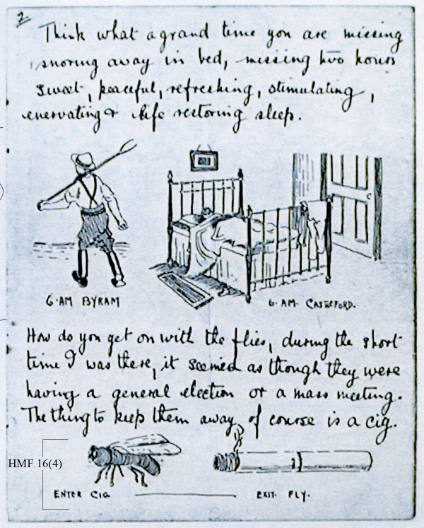 2
Think what a grand time you are missing
snoring away in bed, missing two hours
sweet, peaceful, refreshing, stimulating,
enervating & life restoring sleep.
6·AM BYRAM
6·AM· CASTLEFORD.
How do you get on with the flies, during the short
time I was there, it seemed as though they were
having a general election or a mass meeting.
The thing to keep them away of course is a cig.
HMF 16(4)
ENTER CIG
EXIT· FLY.